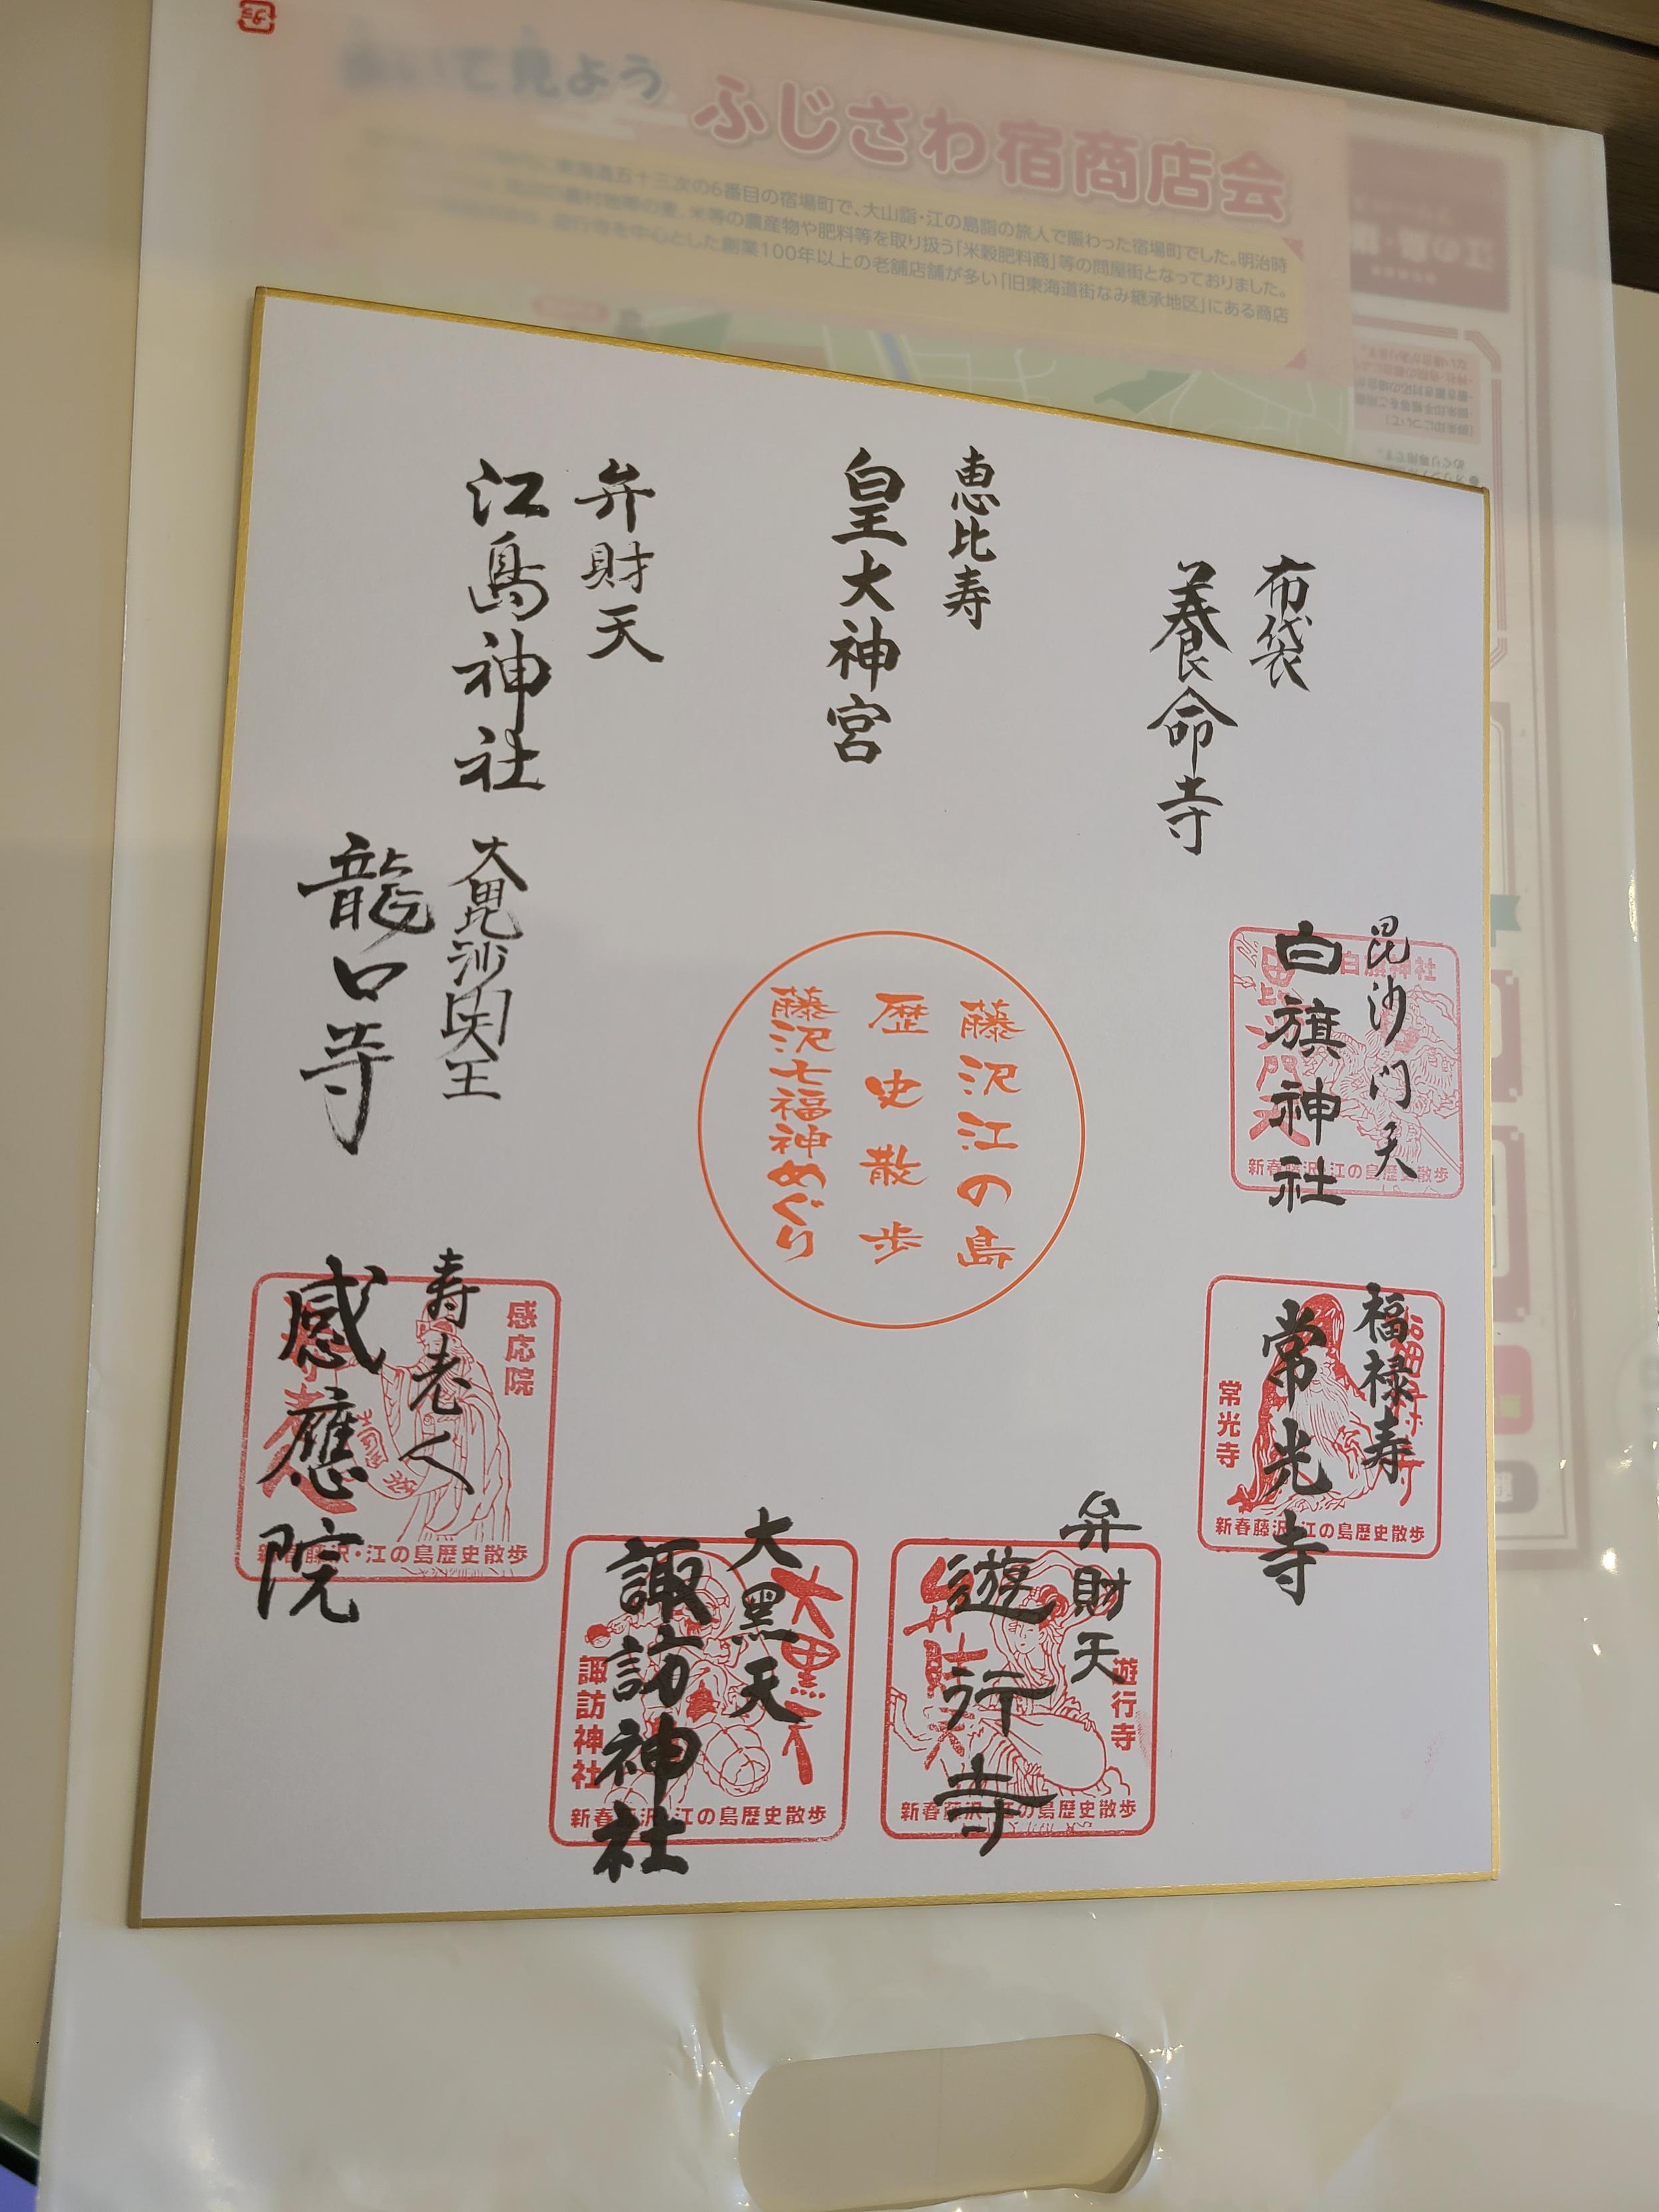 いて見よう
ふじさわ宿商店会
東海道五十三次の6番目の宿場町で、大山詣・江の島詣の旅人で賑わった宿場町でした。明治時
米等の農産物や肥料等を取り扱う「米穀肥料商」等の問屋街となっておりました。
遊行寺を中心とした創業100年以上の老舗店舗が多い「旧東海道街なみ継承地区」にある商店
布袋
養命寺
恵比寿
皇大神宮
弁財天
江島神社
大毘沙門天王
龍口寺
藤沢江の島
歴史散歩
藤沢七福神めぐり
毘沙門天
白旗神社
白旗神社
毘沙門天
新春藤沢・江の島歴史散歩
福禄寿
常光寺
福禄寿
常光寺
新春藤沢・江の島歴史散歩
弁財天
遊行寺
遊行寺
弁財天
新春藤沢・江の島歴史散歩
大黒天
諏訪神社
大黒天
諏訪神社
新春藤沢・江の島歴史散歩
寿老人
感應院
感応院
寿老人
新春藤沢・江の島歴史散歩